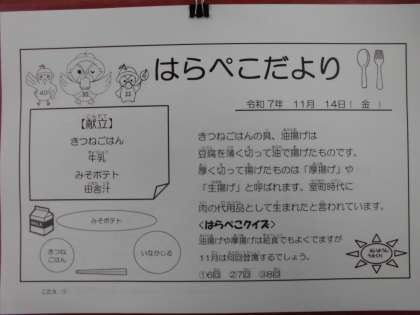 はらぺこだより
令和7年 11月 14日( 金 )
【献立】
きつねごはん
牛乳
みそポテト
田舎汁
きつねごはんの具、油揚げは
豆腐を薄く切って油で揚げたものです。
厚く切って揚げたものは「厚揚げ」や
「生揚げ」と呼ばれます。室町時代に
肉の代用品として生まれたと言われています。
<はらぺこクイズ>
油揚げや厚揚げは給食でもよくでますが
11月は何回登場するでしょう。
①6回 ②7回 ③8回
みそポテト
きつね
ごはん
いなかじる